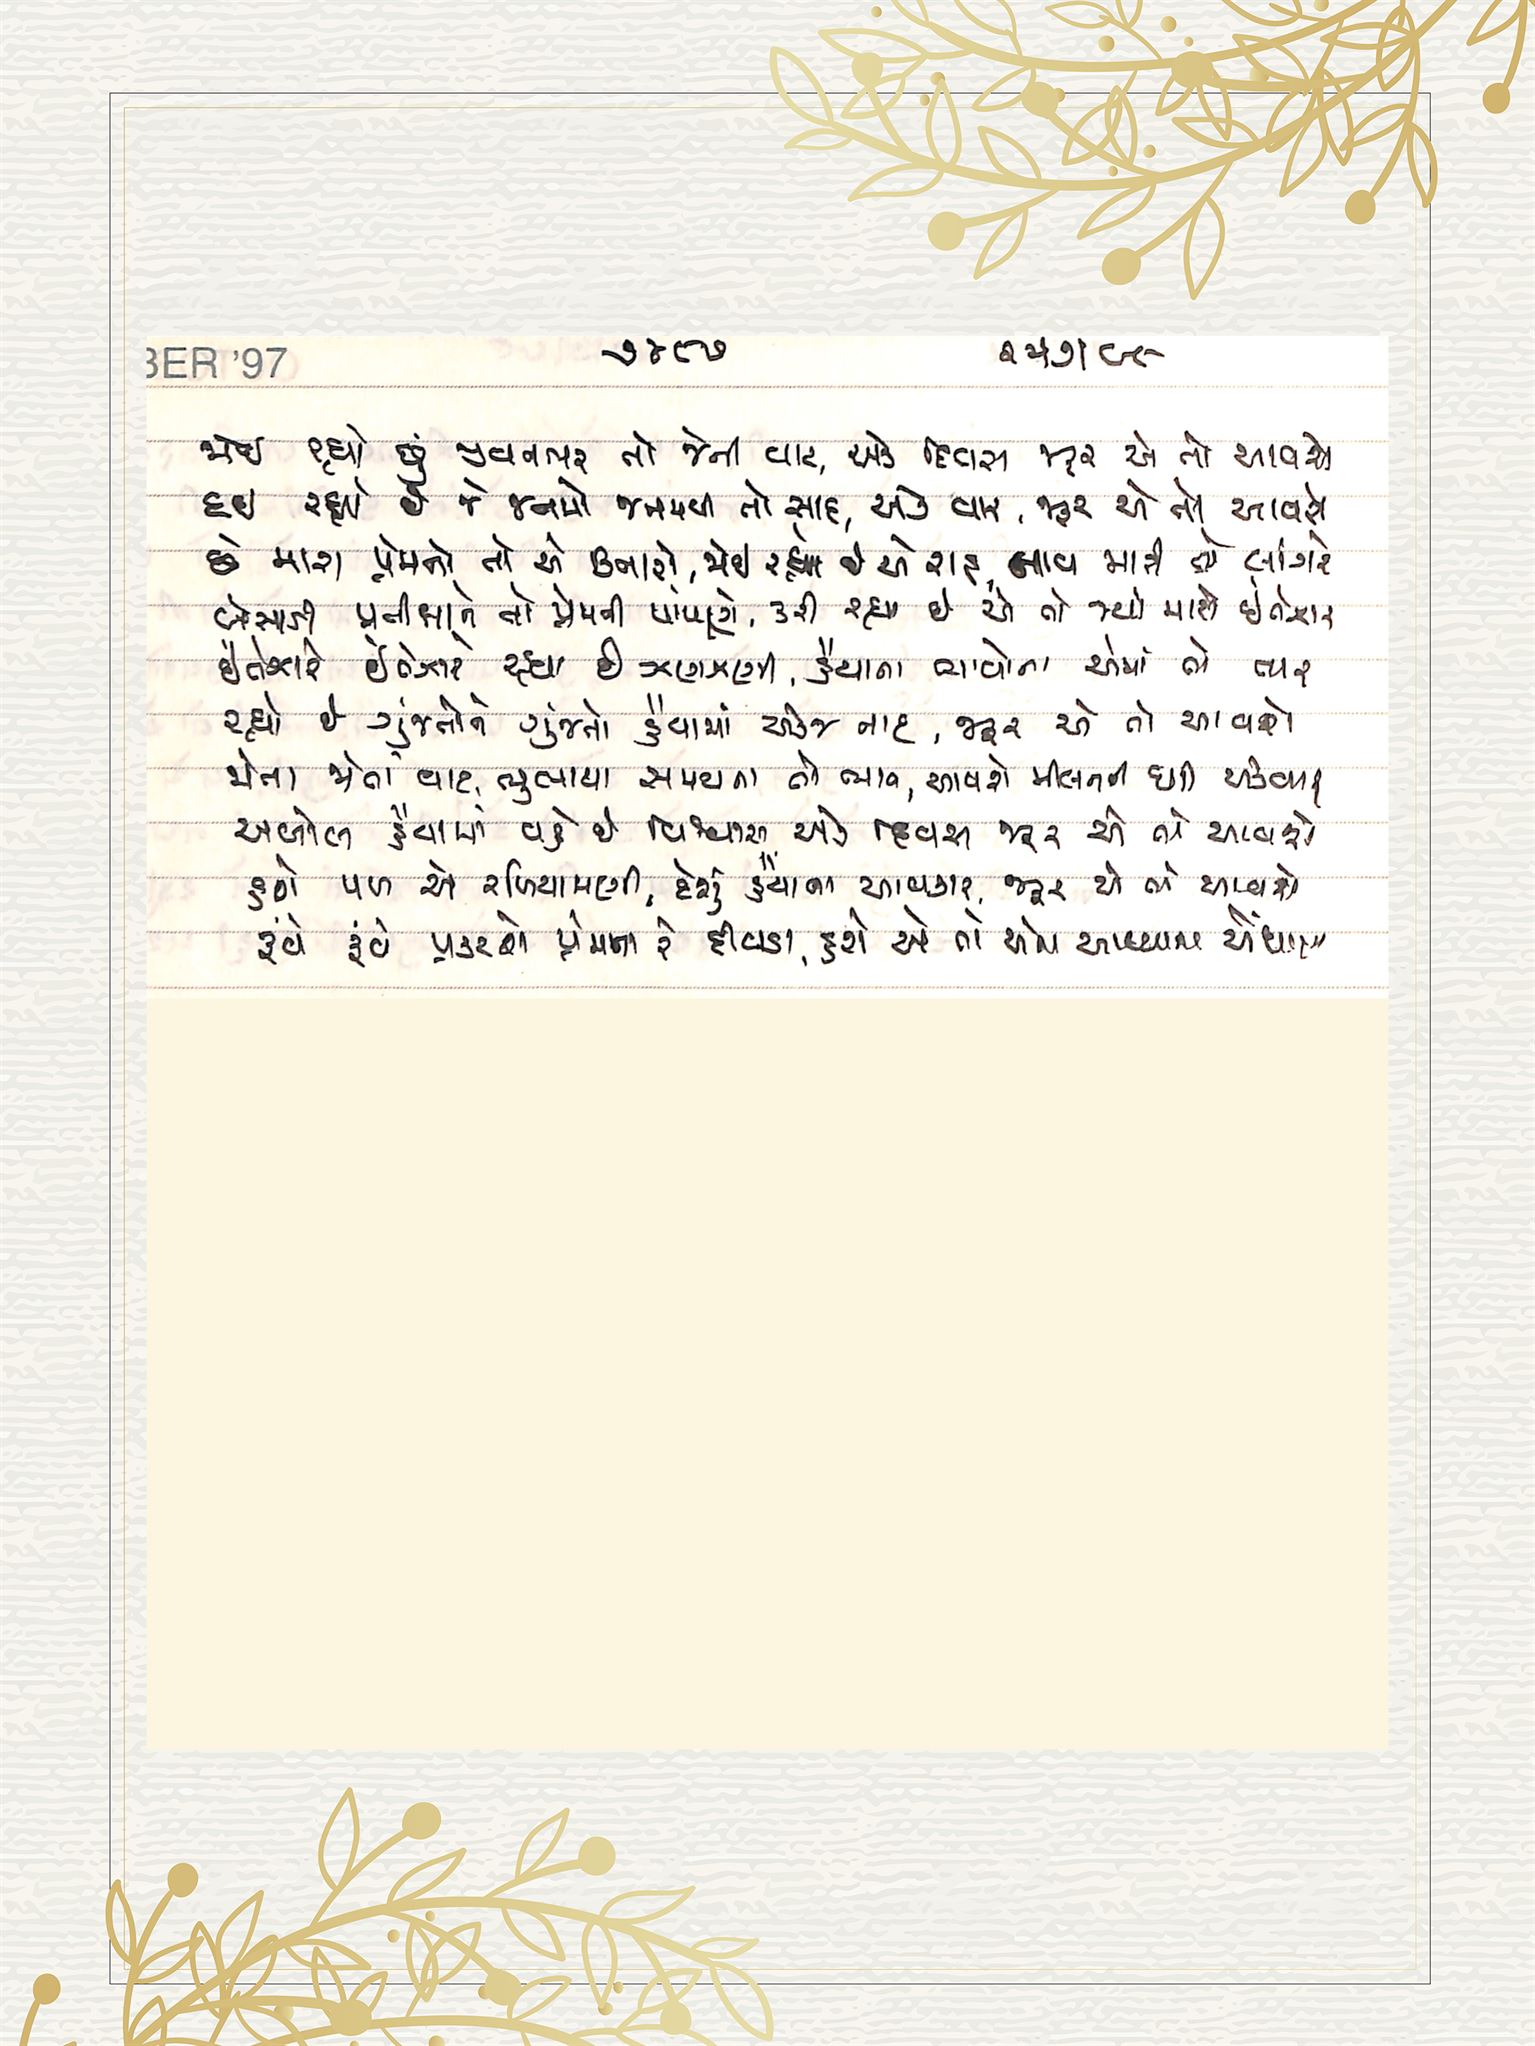 BER '97 ૭૪૯૭ ૨૫૭૧૯૯
જોઈ રહ્યો છું જીવનભર તો જેની વાટ, એક દિવસ જરૂર એ તો આવશે
દઈ રહ્યો છે જે જનમો જનમથી તો સાદ, એક વાર, જરૂર એ તો આવશે
છે મારા પ્રેમનો તો એ કિનારો, જોઈ રહ્યો છે એ રાહ, નાવ મારી તો લાંગરે
બેસાડી પ્રતીક્ષાને તો પ્રેમની પાંપણે, કરી રહ્યા છે એ તો જ્યાં મારો ઇંતેઝાર
ઇંતેઝારે ઇંતેઝારે રહ્યા છે ઝણઝણી, હૈયાના ભાવોના એમાં તો તાર
રહ્યો છે ગુંજતોને ગુંજતો હૈયામાં એકજ નાદ, જરૂર એ તો આવશે
જોતા જોતાં વાટ, ભુલાયા સમયના તો ભાન, આવશે મીલનની ઘડી એકવાર
અબોલ હૈયામાં વહે છે વિશ્વાસ એક દિવસ જરૂર એ તો આવશે
હશે પળ એ રળિયામણી, દેશું હૈયાના આવકાર, જરૂર એ તો આવશે
રૂંવે રૂંવે પ્રકટશે પ્રેમના રે દીવડા, હશે એ તો